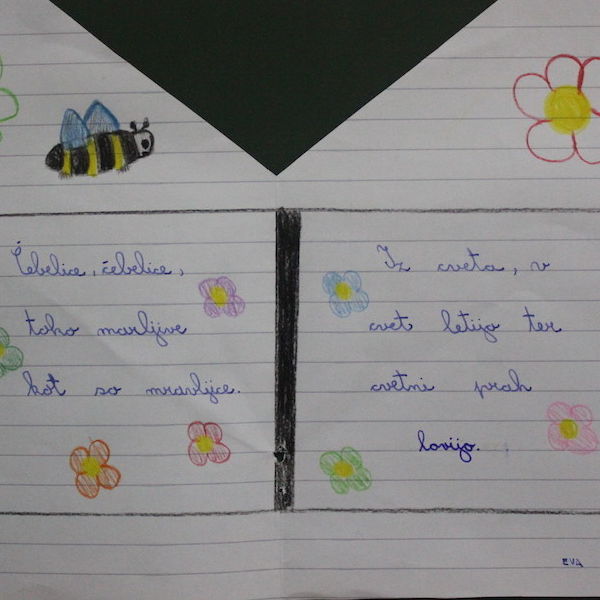 Čebelice, čebelice,
tako marljive
kot so mravljice.
Iz cveta, v
cvet letijo ter
cvetni prah
lovijo.
EVA